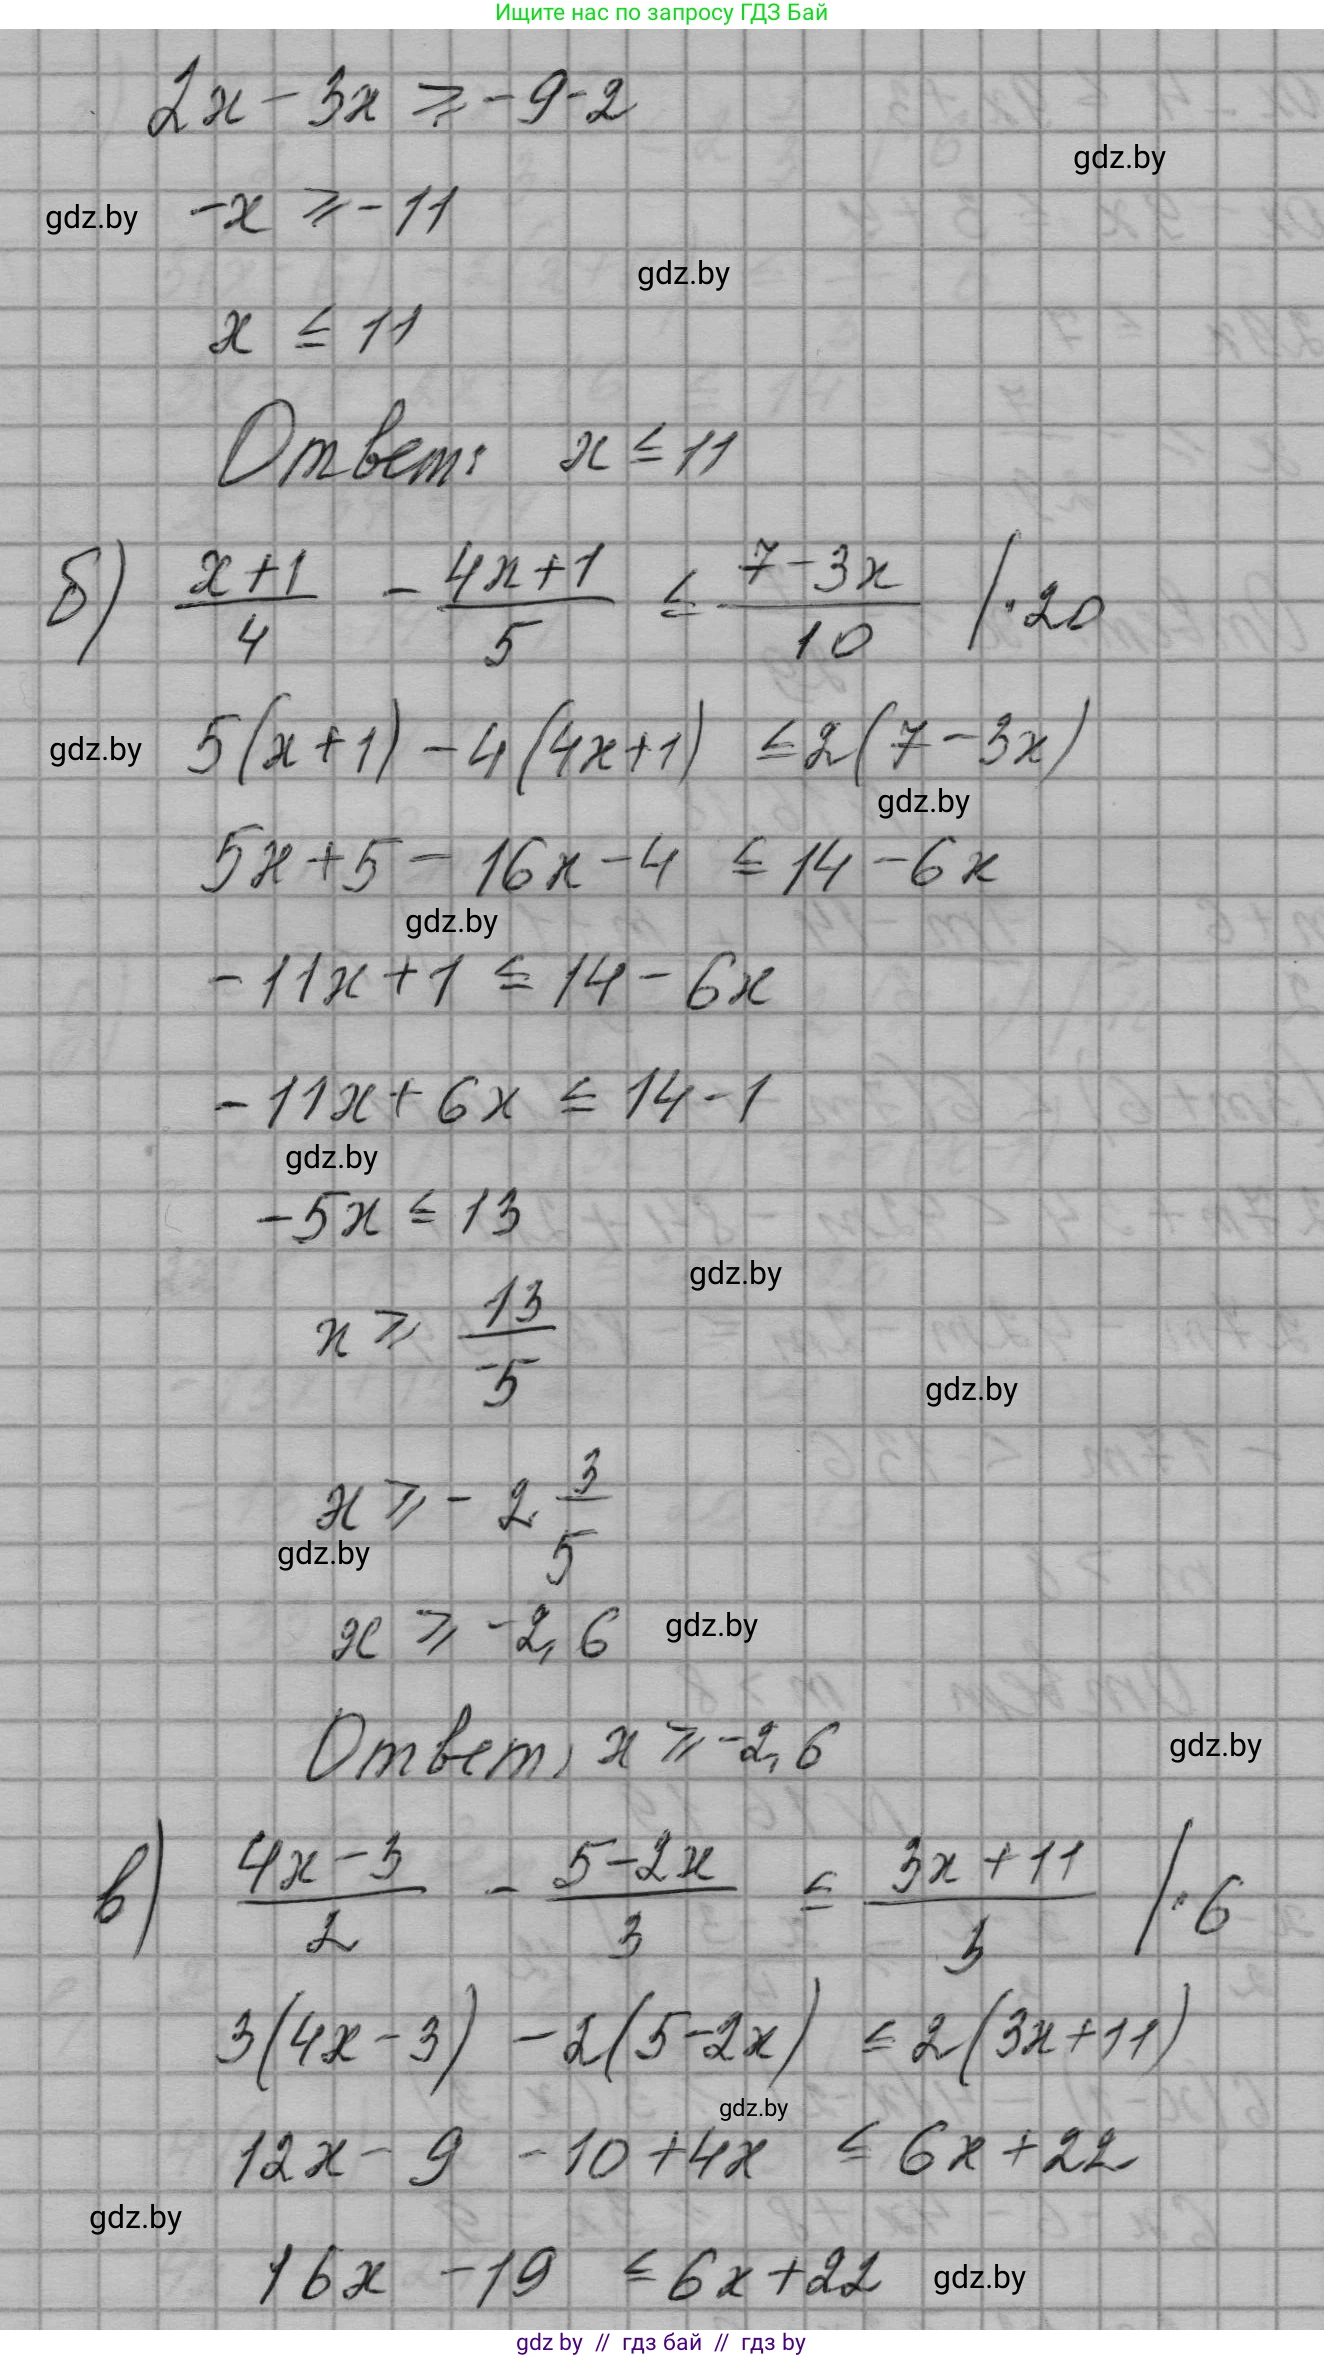 Ищите нас по запросу ГДЗ Бай
2x - 3x ⩾ -9-2
gdz.by
gdz.by
-x ⩾ -11
gdz.by
x ≤ 11
Ответ: x ≤ 11
б) (x+1)/4 - (4x+1)/5 ≤ (7-3x)/10 / · 20
gdz.by
5(x+1) - 4(4x+1) ≤ 2(7-3x)
gdz.by
5x+5 - 16x - 4 ≤ 14 - 6x
gdz.by
-11x + 1 ≤ 14 - 6x
-11x + 6x ≤ 14 - 1
gdz.by
-5x ≤ 13
gdz.by
x ⩾ 13/-5
gdz.by
x ⩾ - 2 3/5
gdz.by
x ⩾ -2,6
gdz.by
Ответ: x ⩾ -2,6
gdz.by
в) (4x-3)/2 - (5-2x)/3 ≤ (3x+11)/3 / · 6
3(4x-3) - 2(5-2x) ≤ 2(3x+11)
gdz.by
12x - 9 - 10 + 4x ≤ 6x + 22
gdz.by
16x - 19 ≤ 6x + 22
gdz.by
gdz by // гдз бай // гдз by